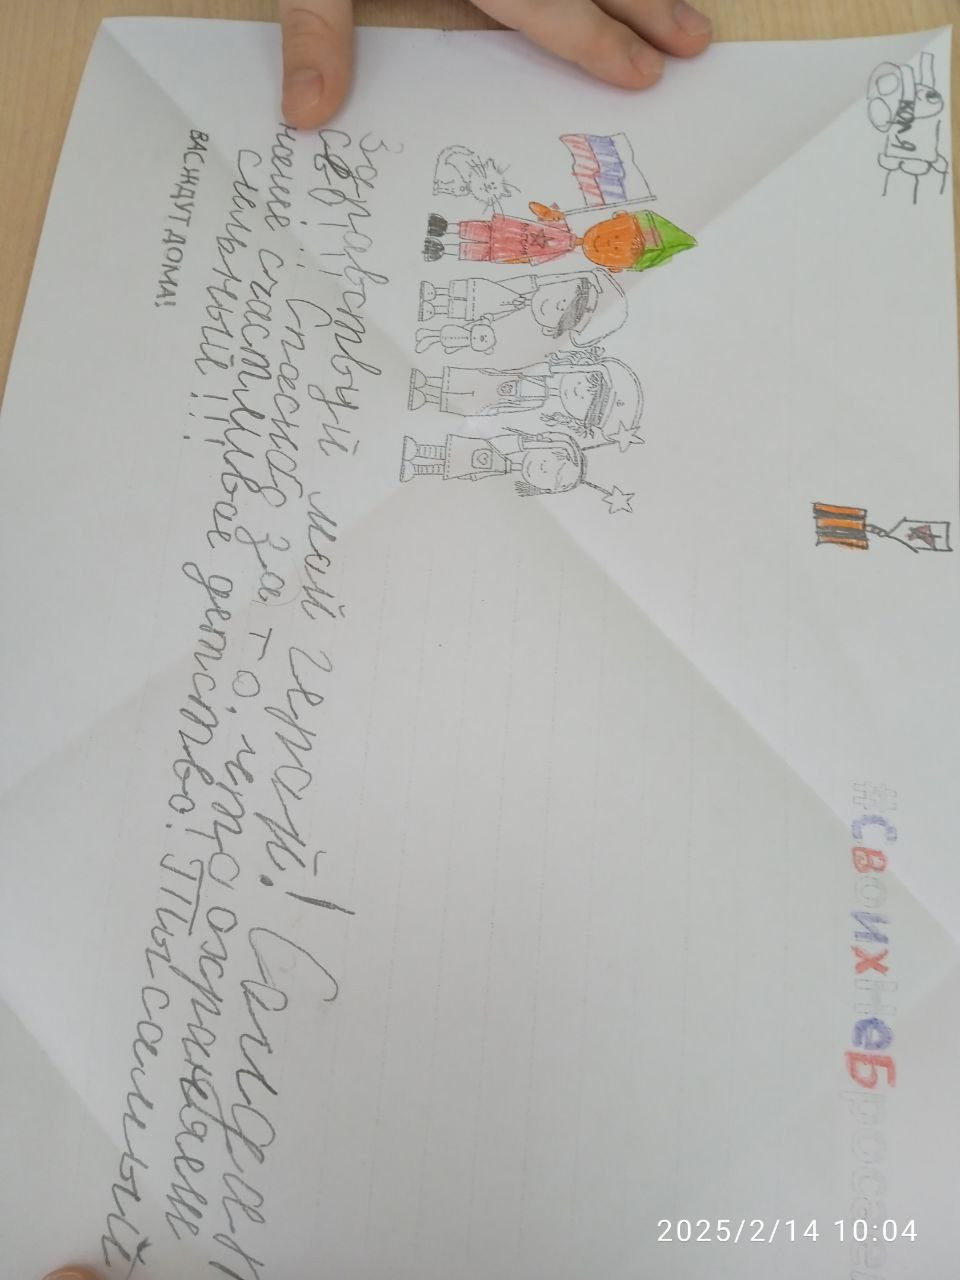 КОЛЯ
#СвоихНеБросае
РОССИЯ
Здравствуй мой герой! Солдат
СВО!! Спасибо за то, что охраняеш
наше счастливое детство! Ты самый
сильный!!!
ВАС ЖДУТ ДОМА!
2025/2/14 10:04